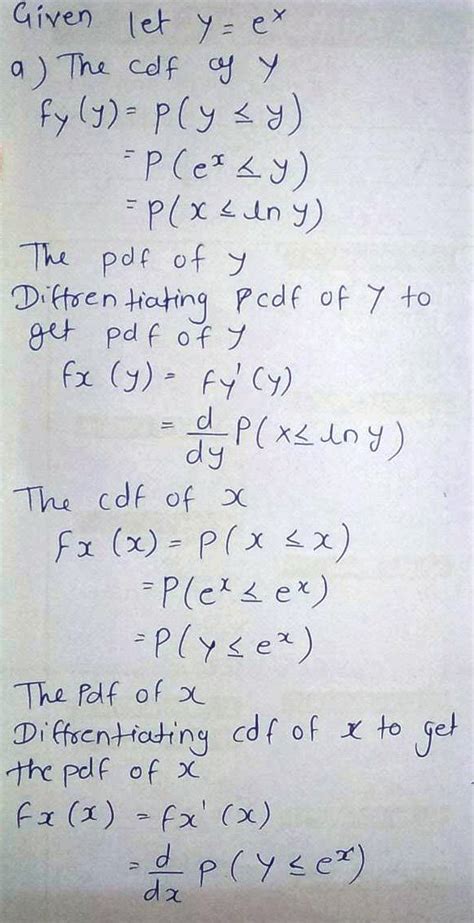 Given let y = e^x
a) The cdf of y
fy(y) = P(y ≤ y)
= P(e^x ≤ y)
= P(x ≤ ln y)
The pdf of y
Diffrentiating pcdf of Y to
get pdf of y
fx (y) = fy'(y)
= d/dy P(x ≤ ln y)
The cdf of x
Fx (x) = P(x ≤ x)
= P(e^x ≤ e^x)
= P(y ≤ e^x)
The Pdf of x
Diffrentiating cdf of x to get
the pdf of x
fx(x) = fx'(x)
= d/dx P(Y ≤ e^x)